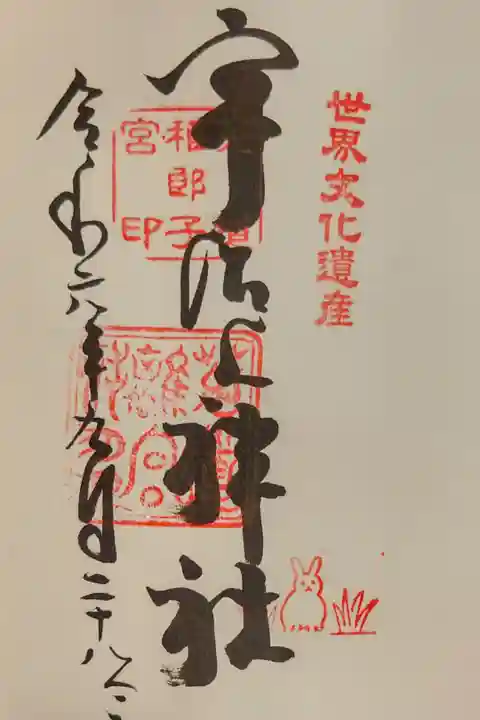 世界文化遺産
宇治上神社
郎子
宮印
令和六年九月二十八日